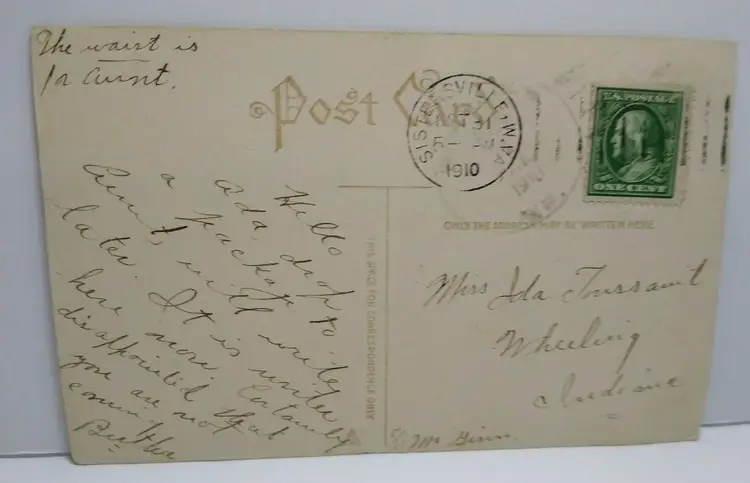 The waist is
for Aunt.
Post Card
SISTERSVILLE, W.VA.
31
5-
1910
U.S. POSTAGE
ONE CENT
ONLY THE ADDRESS MAY BE WRITTEN HERE
THIS SPACE FOR CORRESPONDENCE ONLY
Hello
Ada, drop to
a package
Aunt, will write
later. It is winter
here now. Certainly
disappointed that
you are not
coming.
Bertha
Miss Ida Toussaint
Wheeling
Indiana
c/o Mr Ginn.